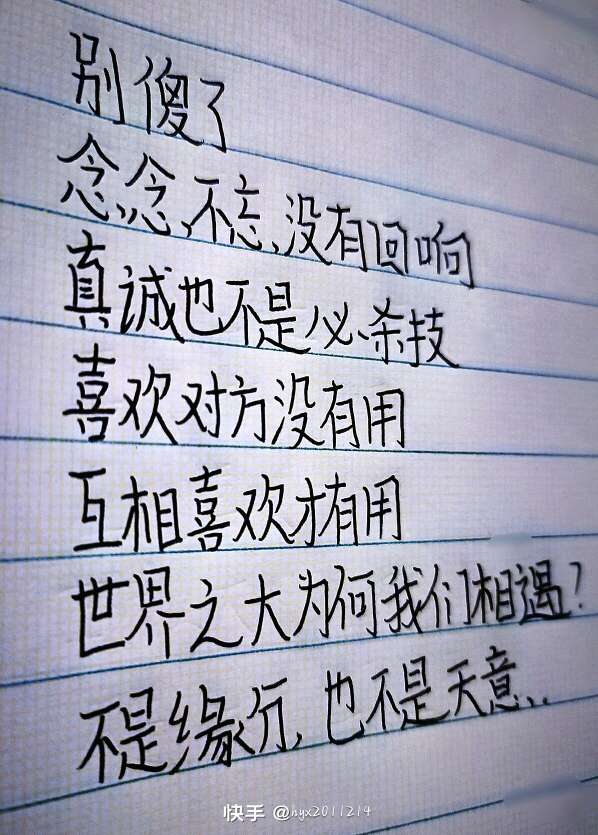 别傻了
念念不忘,没有回响
真诚也不是必杀技
喜欢对方没有用
互相喜欢才有用
世界之大为何我们相遇?
不是缘分,也不是天意..
快手 @nyx2011214